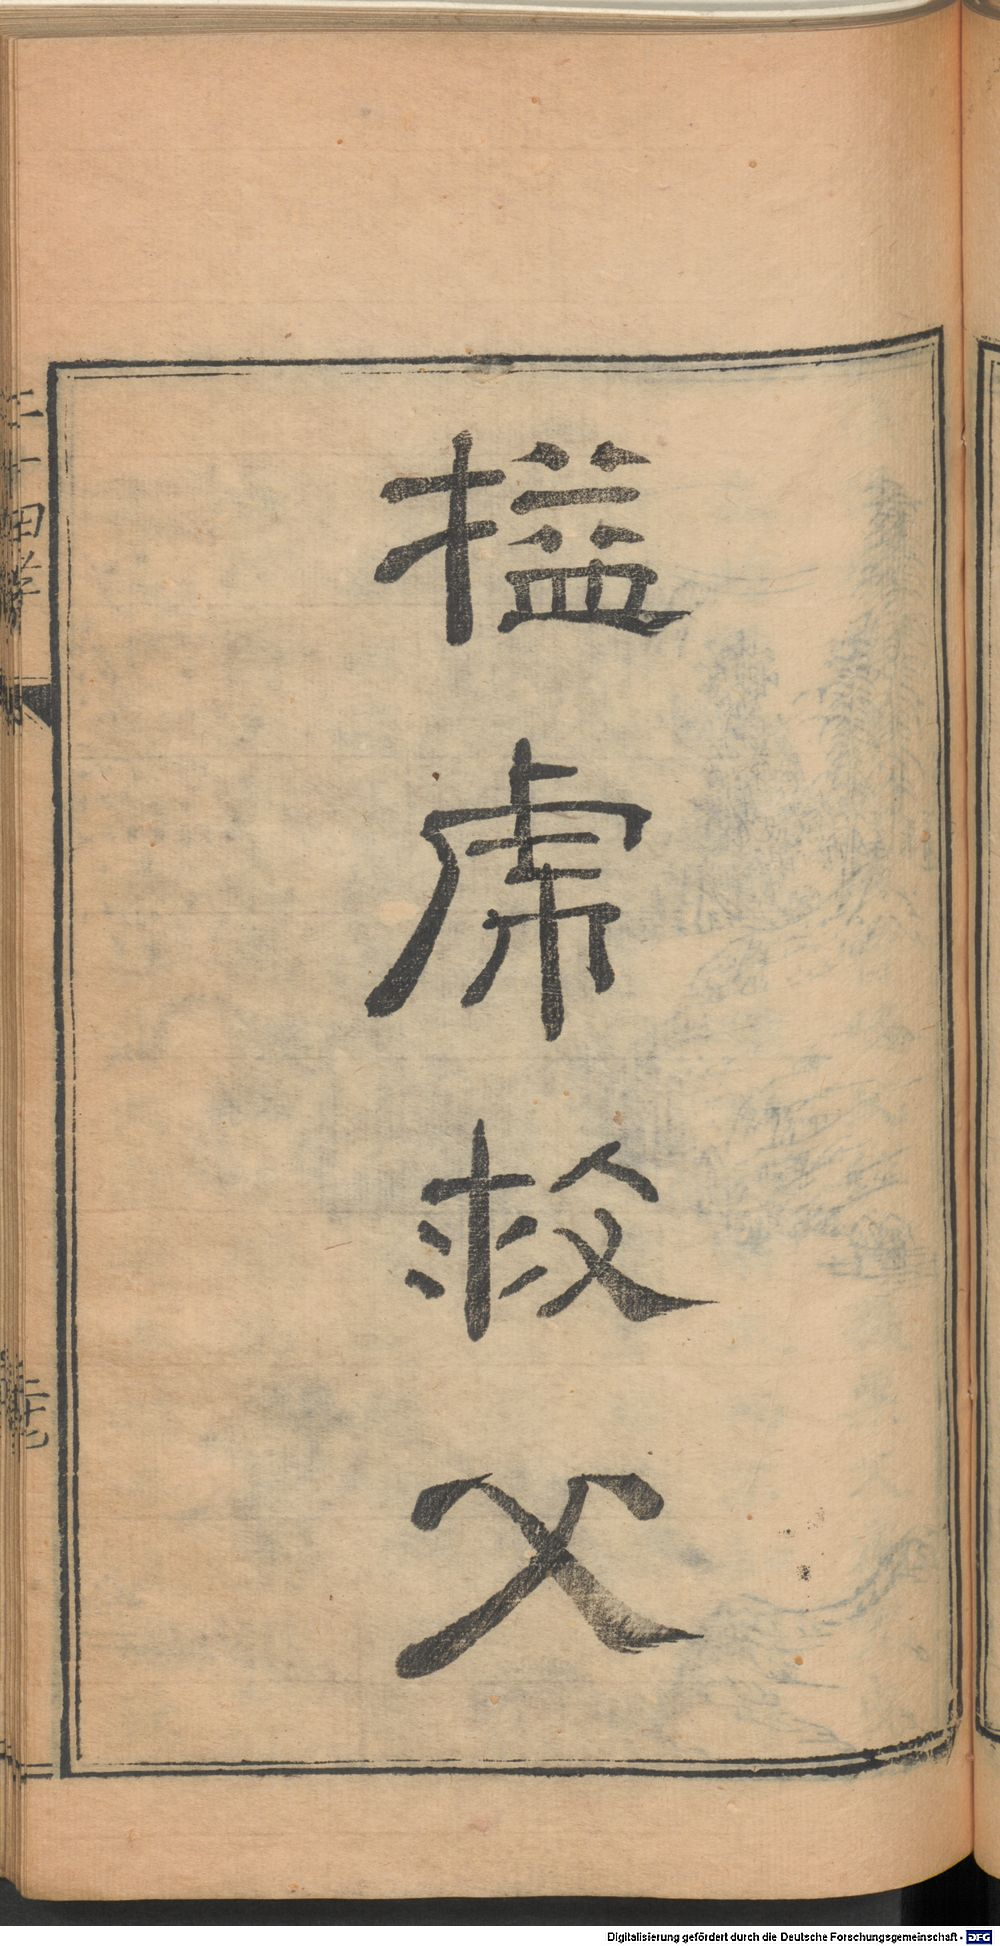 搤虎救父
二十四孝
Digitalisierung gefördert durch die Deutsche Forschungsgemeinschaft - DFG